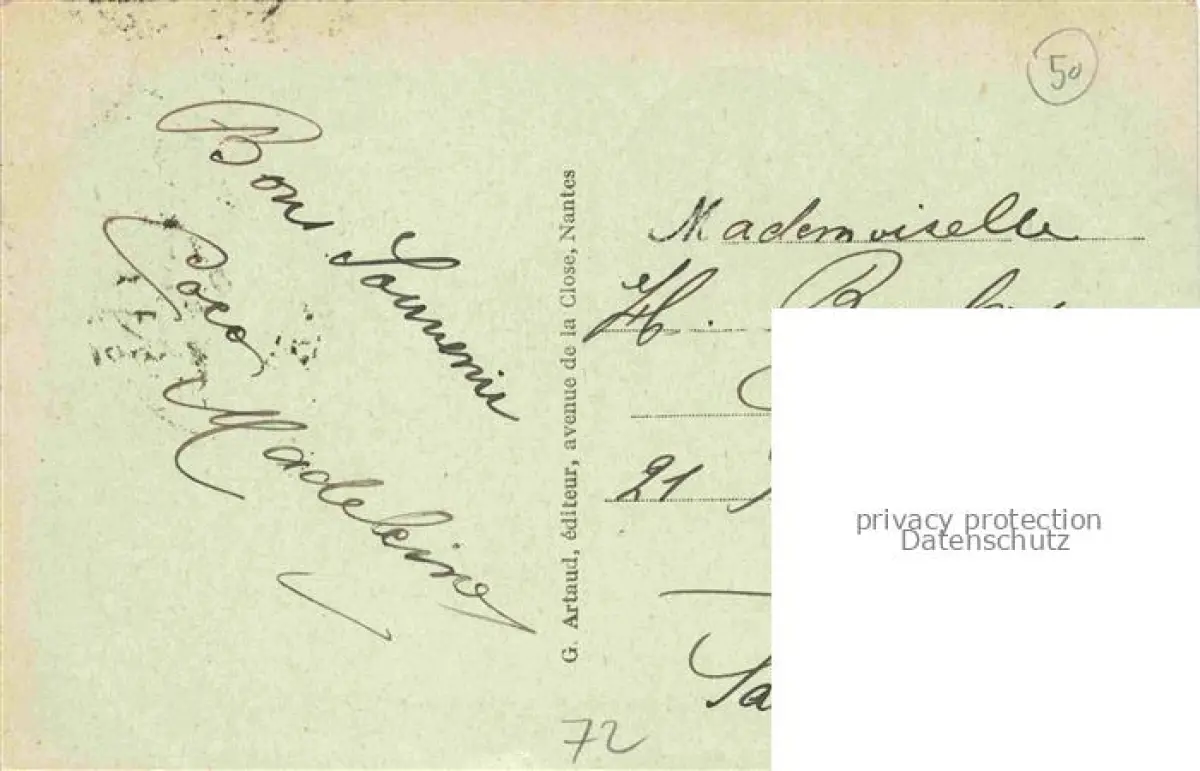 Bon Souvenir
Coco
Madeleine
G. Artaud, éditeur, avenue de la Close, Nantes
50
Mademoiselle
H.
21
privacy protection
Datenschutz
72